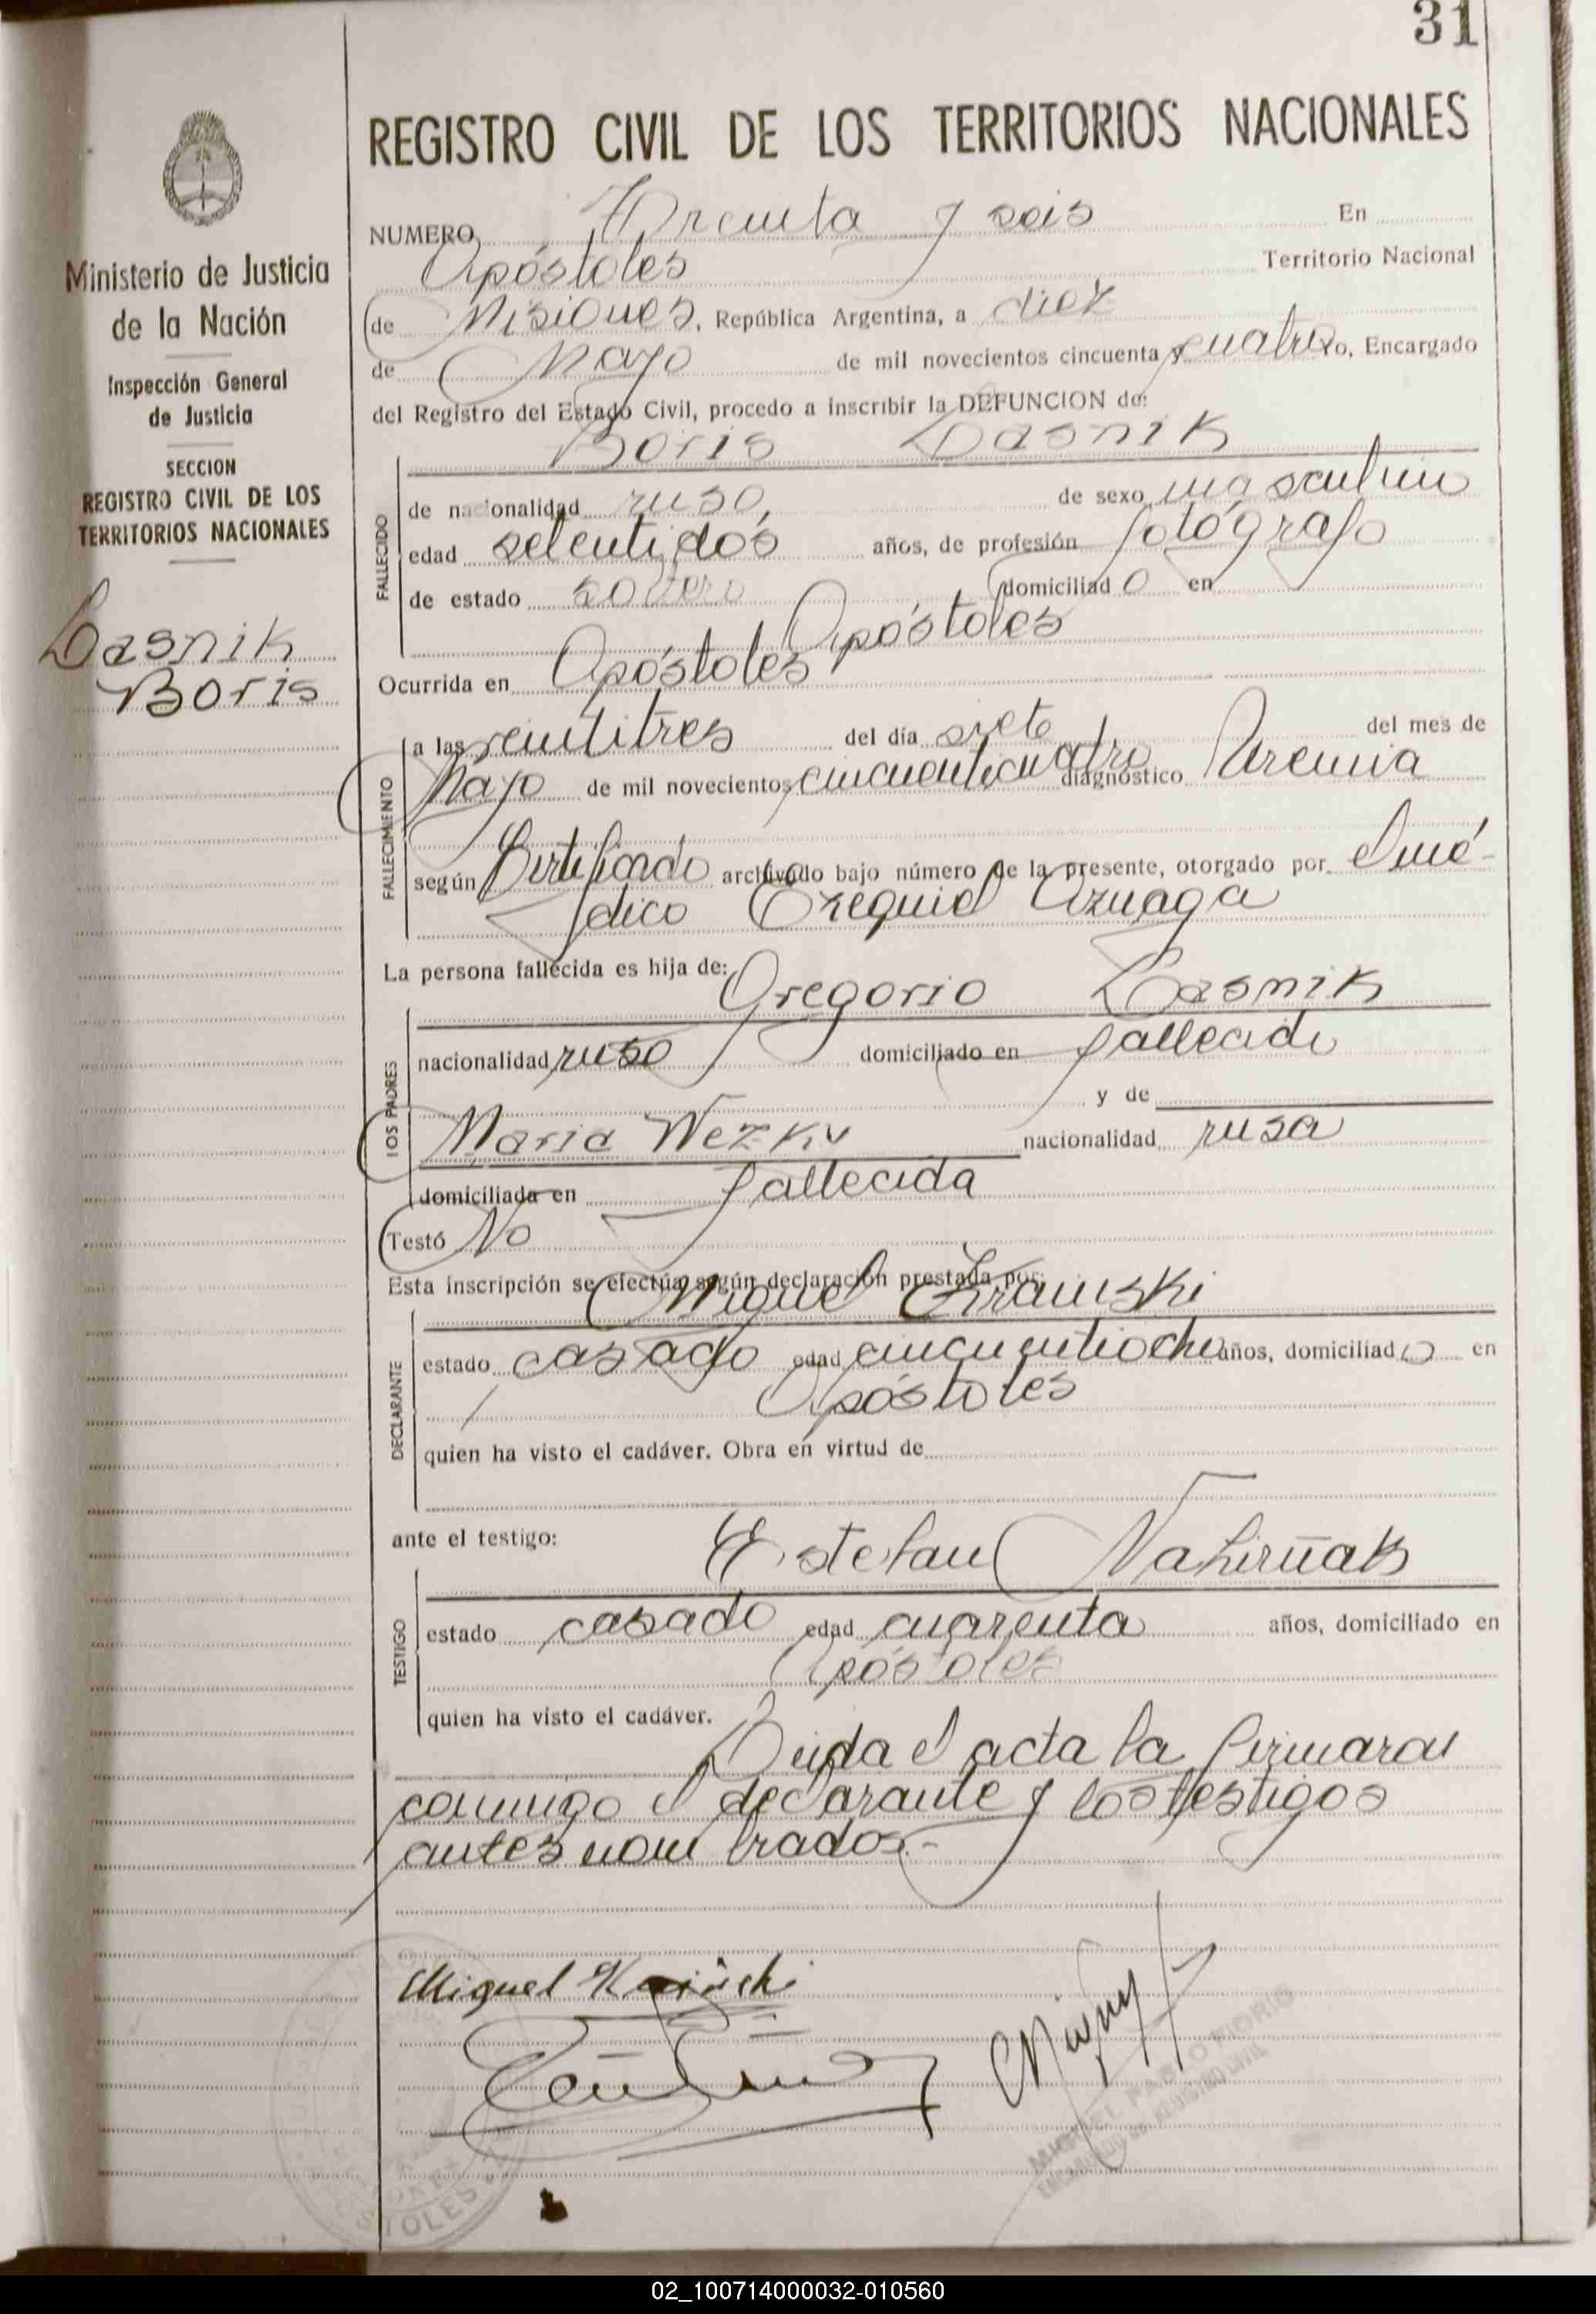 31
REGISTRO CIVIL DE LOS TERRITORIOS NACIONALES
Ministerio de Justicia
de la Nación
Inspección General
de Justicia
SECCION
REGISTRO CIVIL DE LOS
TERRITORIOS NACIONALES
Lasnik
Boris
NUMERO Treinta y seis En
Apóstoles Territorio Nacional
de Misiones, República Argentina, a diez
de Mayo de mil novecientos cincuenta y cuatro yo, Encargado
del Registro del Estado Civil, procedo a inscribir la DEFUNCION de:
Boris Lasnik
FALLECIDO
de nacionalidad ruso, de sexo masculino
edad setentidós años, de profesión fotógrafo
de estado soltero domiciliado en
Apóstoles
Ocurrida en Apóstoles
FALLECIMIENTO
a las veintitres del día siete del mes de
Mayo de mil novecientos cincuenticuatro diagnóstico Uremia
según Certificado archivado bajo número de la presente, otorgado por el mé-
dico Ezequiel Azuaga
La persona fallecida es hija de:
Gregorio Lasnik
LOS PADRES
nacionalidad ruso domiciliado en fallecido
y de
Maria Wezku nacionalidad rusa
domiciliada en fallecida
Testó No
Esta inscripción se efectúa según declaración prestada por:
Miguel
DECLARANTE
estado casado edad cincuentiocho años, domiciliado en
Apóstoles
quien ha visto el cadáver. Obra en virtud de
ante el testigo:
Estefan Nahirñak
TESTIGO
estado casado edad cuarenta años, domiciliado en
Apóstoles
quien ha visto el cadáver.
Leida el acta la firmaron
conmigo el declarante y los testigos
antes nombrados.-
Miguel
MIGUEL PABLO FIORIO
ENCARGADO DEL REGISTRO CIVIL
02_100714000032-010560